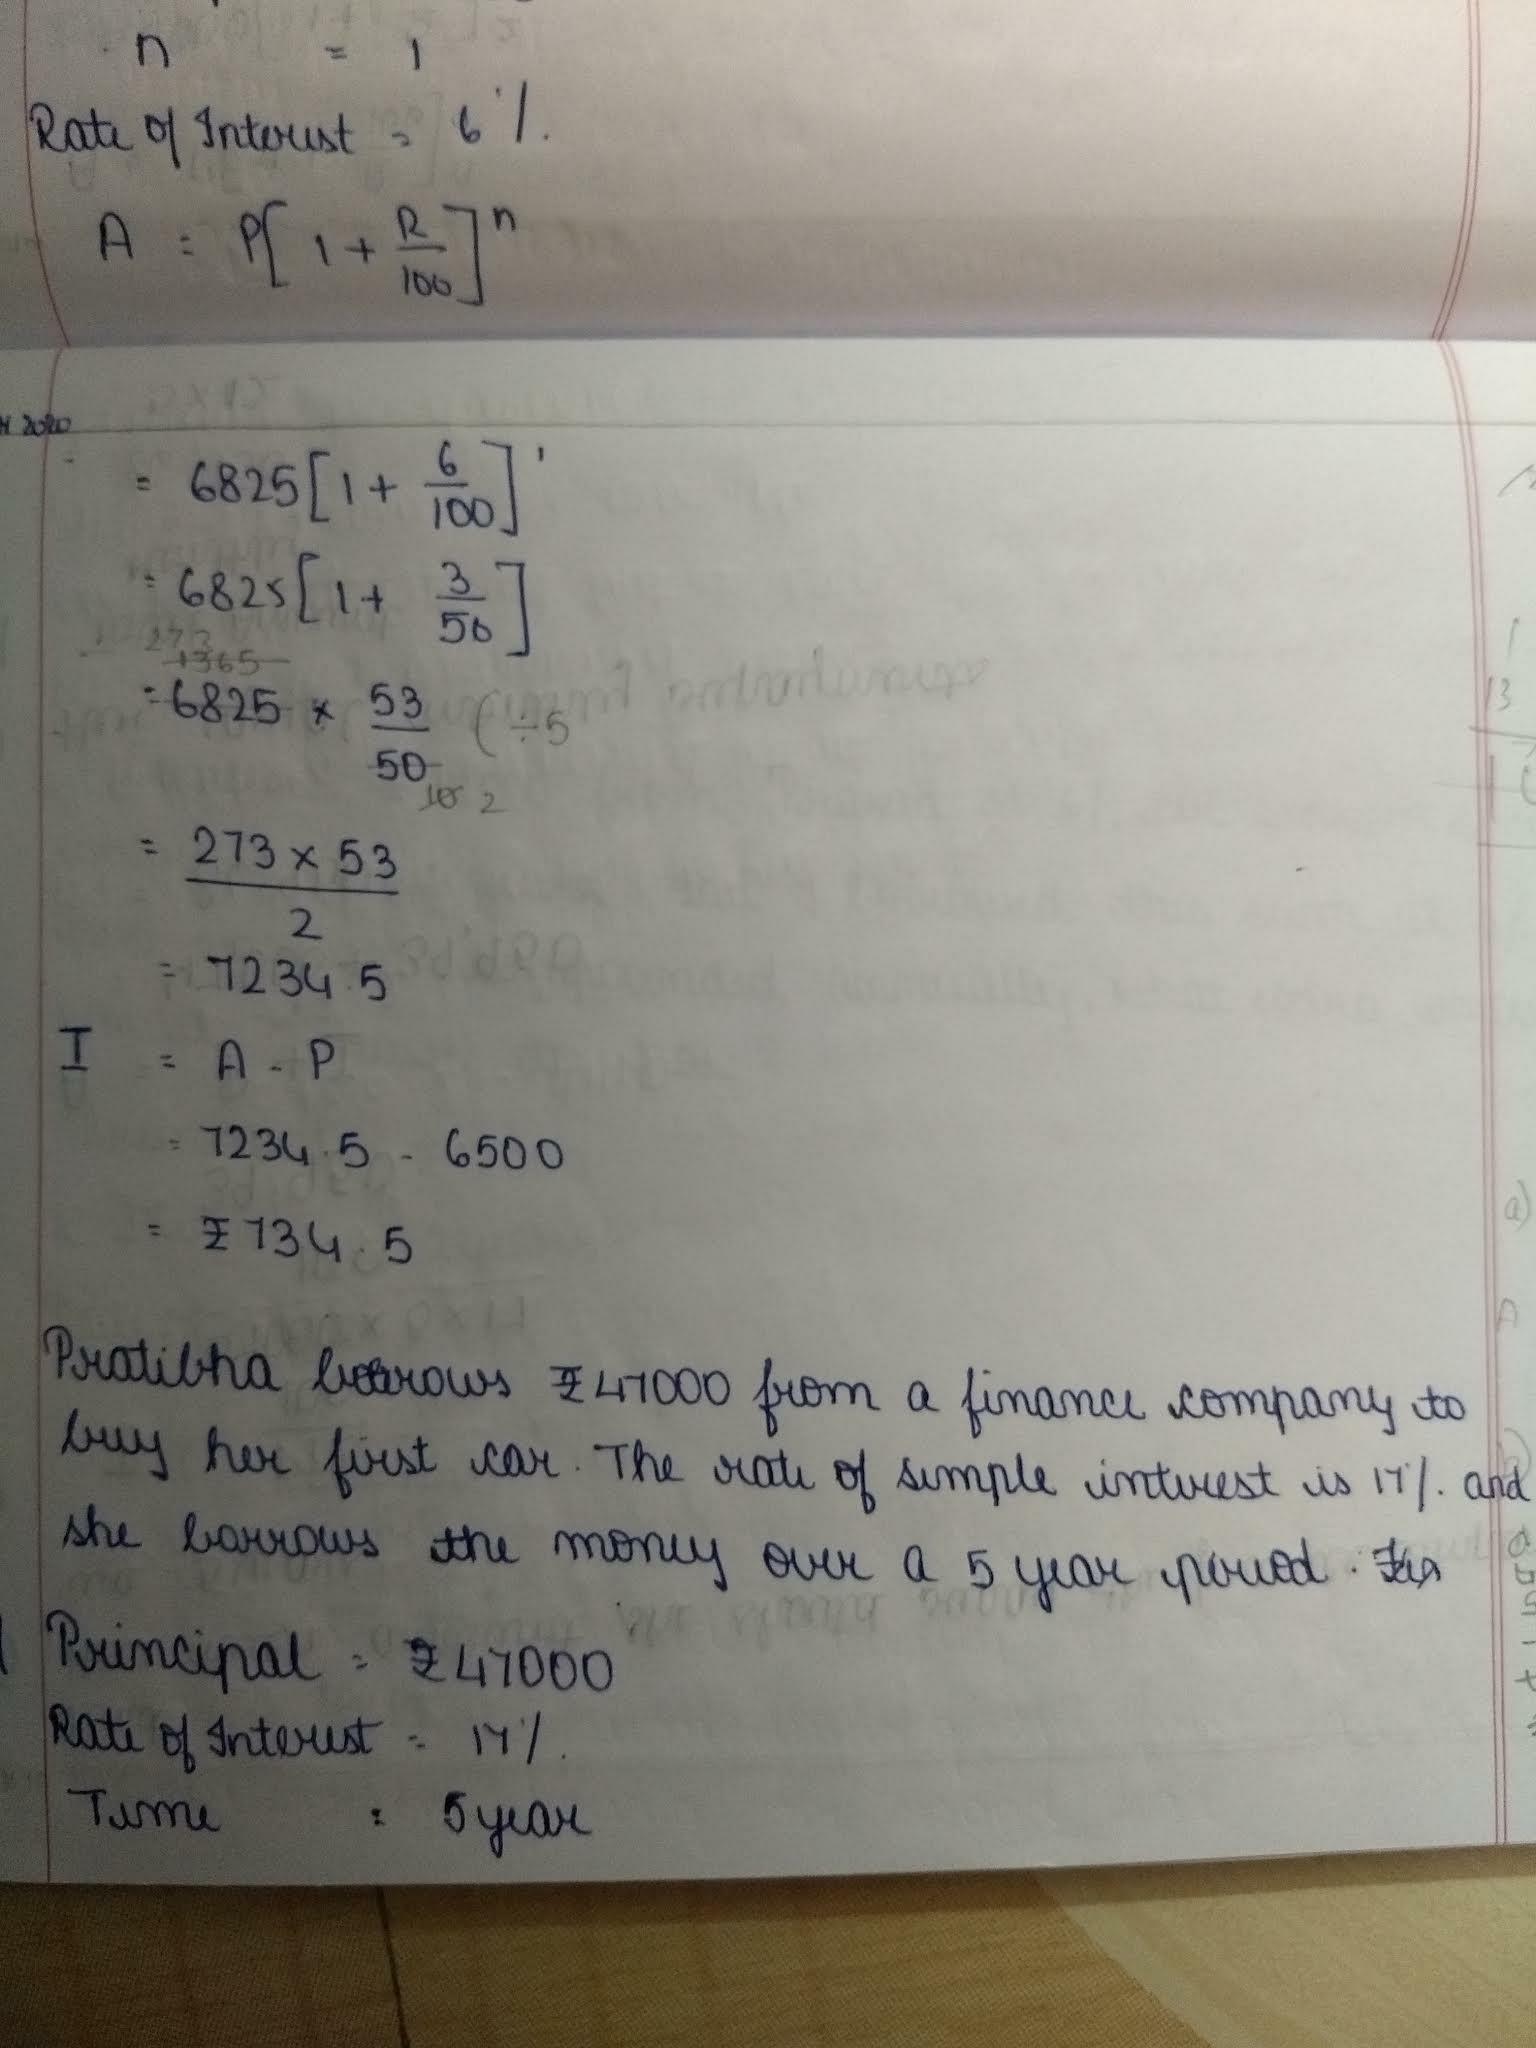 n = 1
Rate of Interest = 6%.
A = P[1 + R/100]^n
2020
= 6825[1 + 6/100]^1
= 6825[1 + 3/50]
273
1365
= 6825 × 53/50 (÷5
10 2
= 273 × 53 / 2
= 7234.5
I = A - P
= 7234.5 - 6500
= ₹734.5
Pratibha borrows ₹47000 from a finance company to
buy her first car. The rate of simple interest is 17%. and
she borrows the money over a 5 year period.
Principal = ₹47000
Rate of Interest = 17%.
Time = 5 year